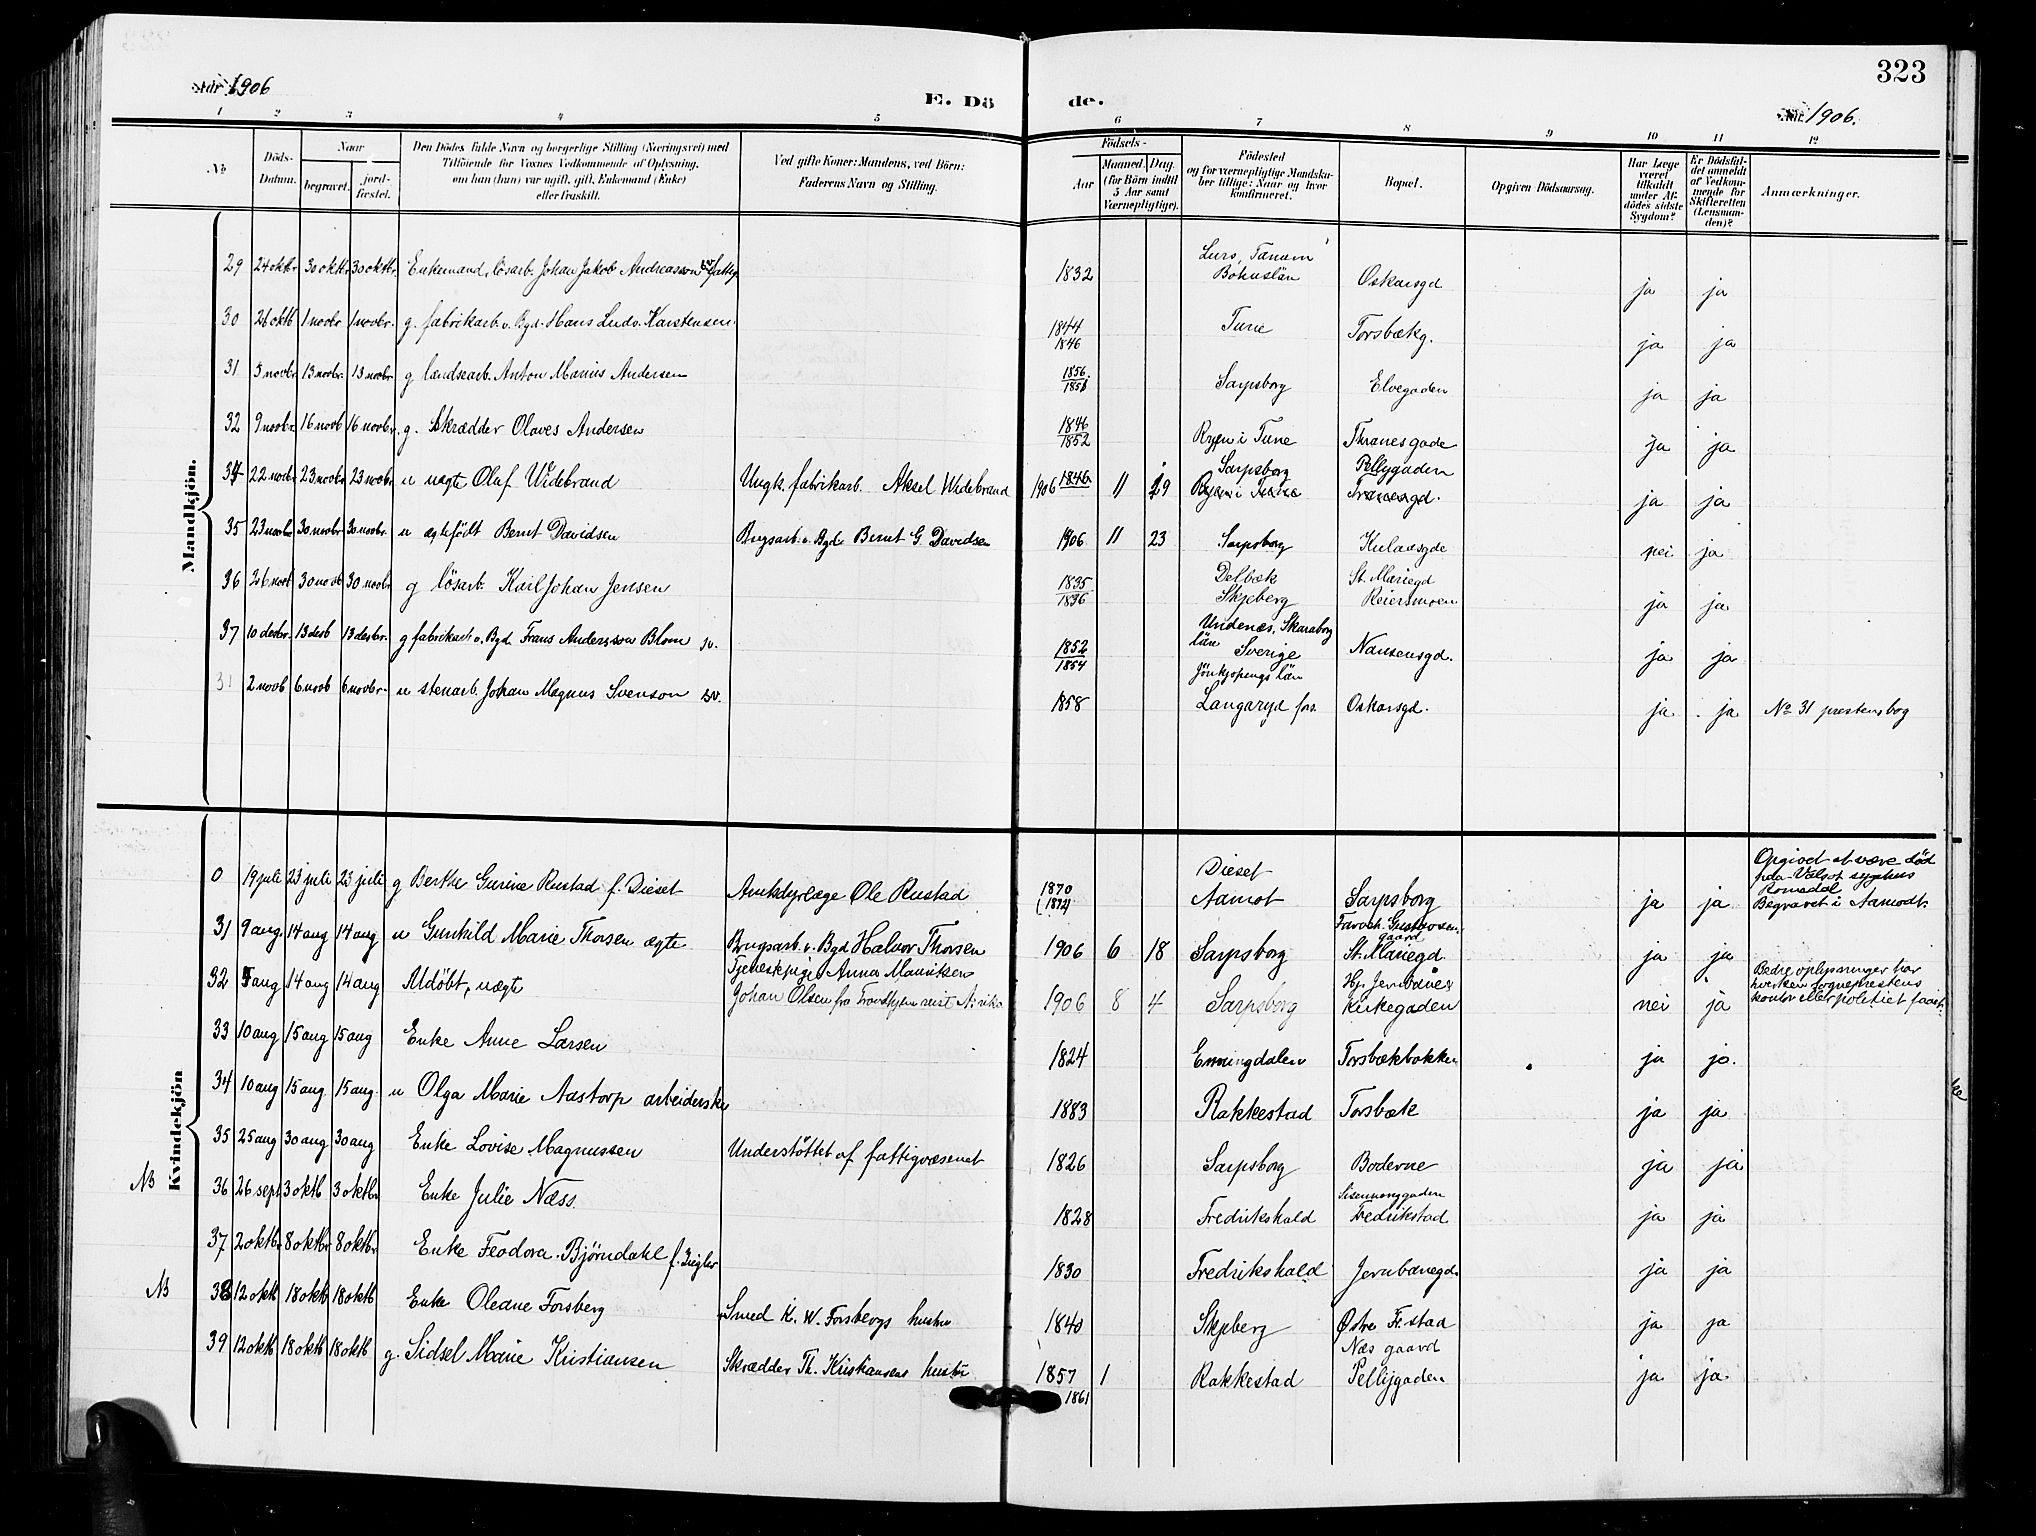 Aar 1906
E. Dö
de.
323
Aar 1906.
1 2 3 4 5 6 7 8 9 10 11 12
No
Döds-Datum.
Naar
begravet.
jord-fæstet.
Den Dödes fulde Navn og borgerlige Stilling (Næringsvei) med
Tilföiende for Voxnes Vedkommende af Oplysning,
om han (hun) var ugift, gift, Enkemand (Enke)
eller fraskilt.
Ved gifte Koner: Mandens, ved Börn:
Faderens Navn og Stilling.
Födsels-
Aar
Maaned. Dag.
(for Börn indtil
5 Aar samt
Værnepligtige).
Födested
og for værnepligtige Mandska-
ber tillige: Naar og hvor
konfirmeret.
Bopæl.
Opgiven Dödsaarsag.
Har Læge
været
tilkaldt
under Af-
dödes sidste
Sygdom?
Er Dödsfal-
det anmeldt
af Vedkom-
mende for
Skifteretten
(Lensman-
den)?
Anmærkninger.
Mandkjön.
29 24 oktbr 30 oktbr 30 oktbr. Enkemand, lösarb. Johan Jakob Andreasson sv fattig 1832 Lurs, Tanum Bohuslän Oskarsgd ja ja
30 26 oktb 1 novbr 1 novbr. g. fabrikarb. o. Bgd. Hans Ludv. Karstensen. 1844 1846 Tune Torsbækg. ja ja
31 3 novbr 13 novbr. 13 novbr. g lændsearb. Anton Marius Andersen 1856 Sarpsborg Elvegaden ja ja
32 9 novbr. 16 novb 16 novbr. g. Skrædder Olaves Andersen 1846 1852 Ryen i Tune Thranesgade ja ja
34 22 novbr. 23 novbr 23 novbr. u uægte Olaf Widebrand Ungk. fabrikarb. Aksel Widebrand 1906 1846 11 19 Sarpsborg Ryen i Tune Pellygaden Tranesgd. ja ja
35 23 novbr 30 novbr. 30 novbr. u ægtefödt Bernt Davidsen Brugsarb. o. Bgd. Bernt G. Davidsen 1906 11 23 Sarpsborg Kulaasgde nei ja
36 26 novb 30 novb 30 novbr g lösarb. Karl Johan Jensen 1835 1836 Delbæk Skjeberg St. Mariegd Reiersmoen ja ja
37 10 desbr. 13 desb 13 desbr. g fabrikarb o. Bgd. Frans Andersson Blom sv. 1852 1854 Undenæs, Skaraborg län Sverige Nansensgd. ja ja
31 2 novb 6 novb 6 novbr. u stenarb. Johan Magnus Svenson sv. 1858 Jönkjøpings län Langaryd fors. Oskarsgd. ja ja No 31 prestens bog
Kvindekjön
0 19 juli 23 juli 23 juli g Berthe Gurine Rustad f. Dieset Amtsdyrlæge Ole Rustad 1870 (1872) Dieset Aamot Sarpsborg ja ja Opgivet at være död paa sygehus Romsdal Begravet i Aamodt.
31 9 aug 14 aug 14 aug u Gunhild Marie Thorsen ægte Brugsarb. o. Bgd Halvor Thorsen 1906 6 18 Sarpsborg Gustavsen gaard St. Mariegd. ja ja
32 5 aug 14 aug 14 aug Udöbt, uægte Tjenestepige Anna Mauritsen Johan Olsen fra Trondhjem 1906 8 4 Sarpsborg Hj. Jernbane Kirkegaden nei ja Bedre oplysninger har hverken sogneprestens kontor eller politiet faaet.
33 10 aug 15 aug 15 aug Enke Anne Larsen 1824 Enningdalen Torsbækbakken ja ja
34 10 aug 15 aug 15 aug u Olga Marie Aastorp arbeiderske 1883 Rakkestad Torsbæk ja ja
35 25 aug 30 aug 30 aug Enke Lovise Magnussen Understöttet af fattigvæsenet 1826 Sarpsborg Boderne ja ja
NB 36 26 sept 3 oktb 3 oktbr Enke Julie Næss. 1828 Fredrikshald Fredrikstad ja ja
37 2 oktbr 8 oktbr 8 oktbr. Enke Feodora Bjørndahl f. Ziegler 1830 Fredrikshald Jernbanegd. ja ja
NB 38 12 oktb 18 oktb 18 oktb Enke Oleane Forsberg Smed K. W. Forsbergs hustru 1840 Skjeberg Østre Fr.stad Næs gaard ja ja
39 12 oktb 18 oktb 18 oktb g. Sidsel Marie Kristiansen Skrædder Th. Kristiansens hustru 1857 1861 1 Rakkestad Pellygaden ja ja